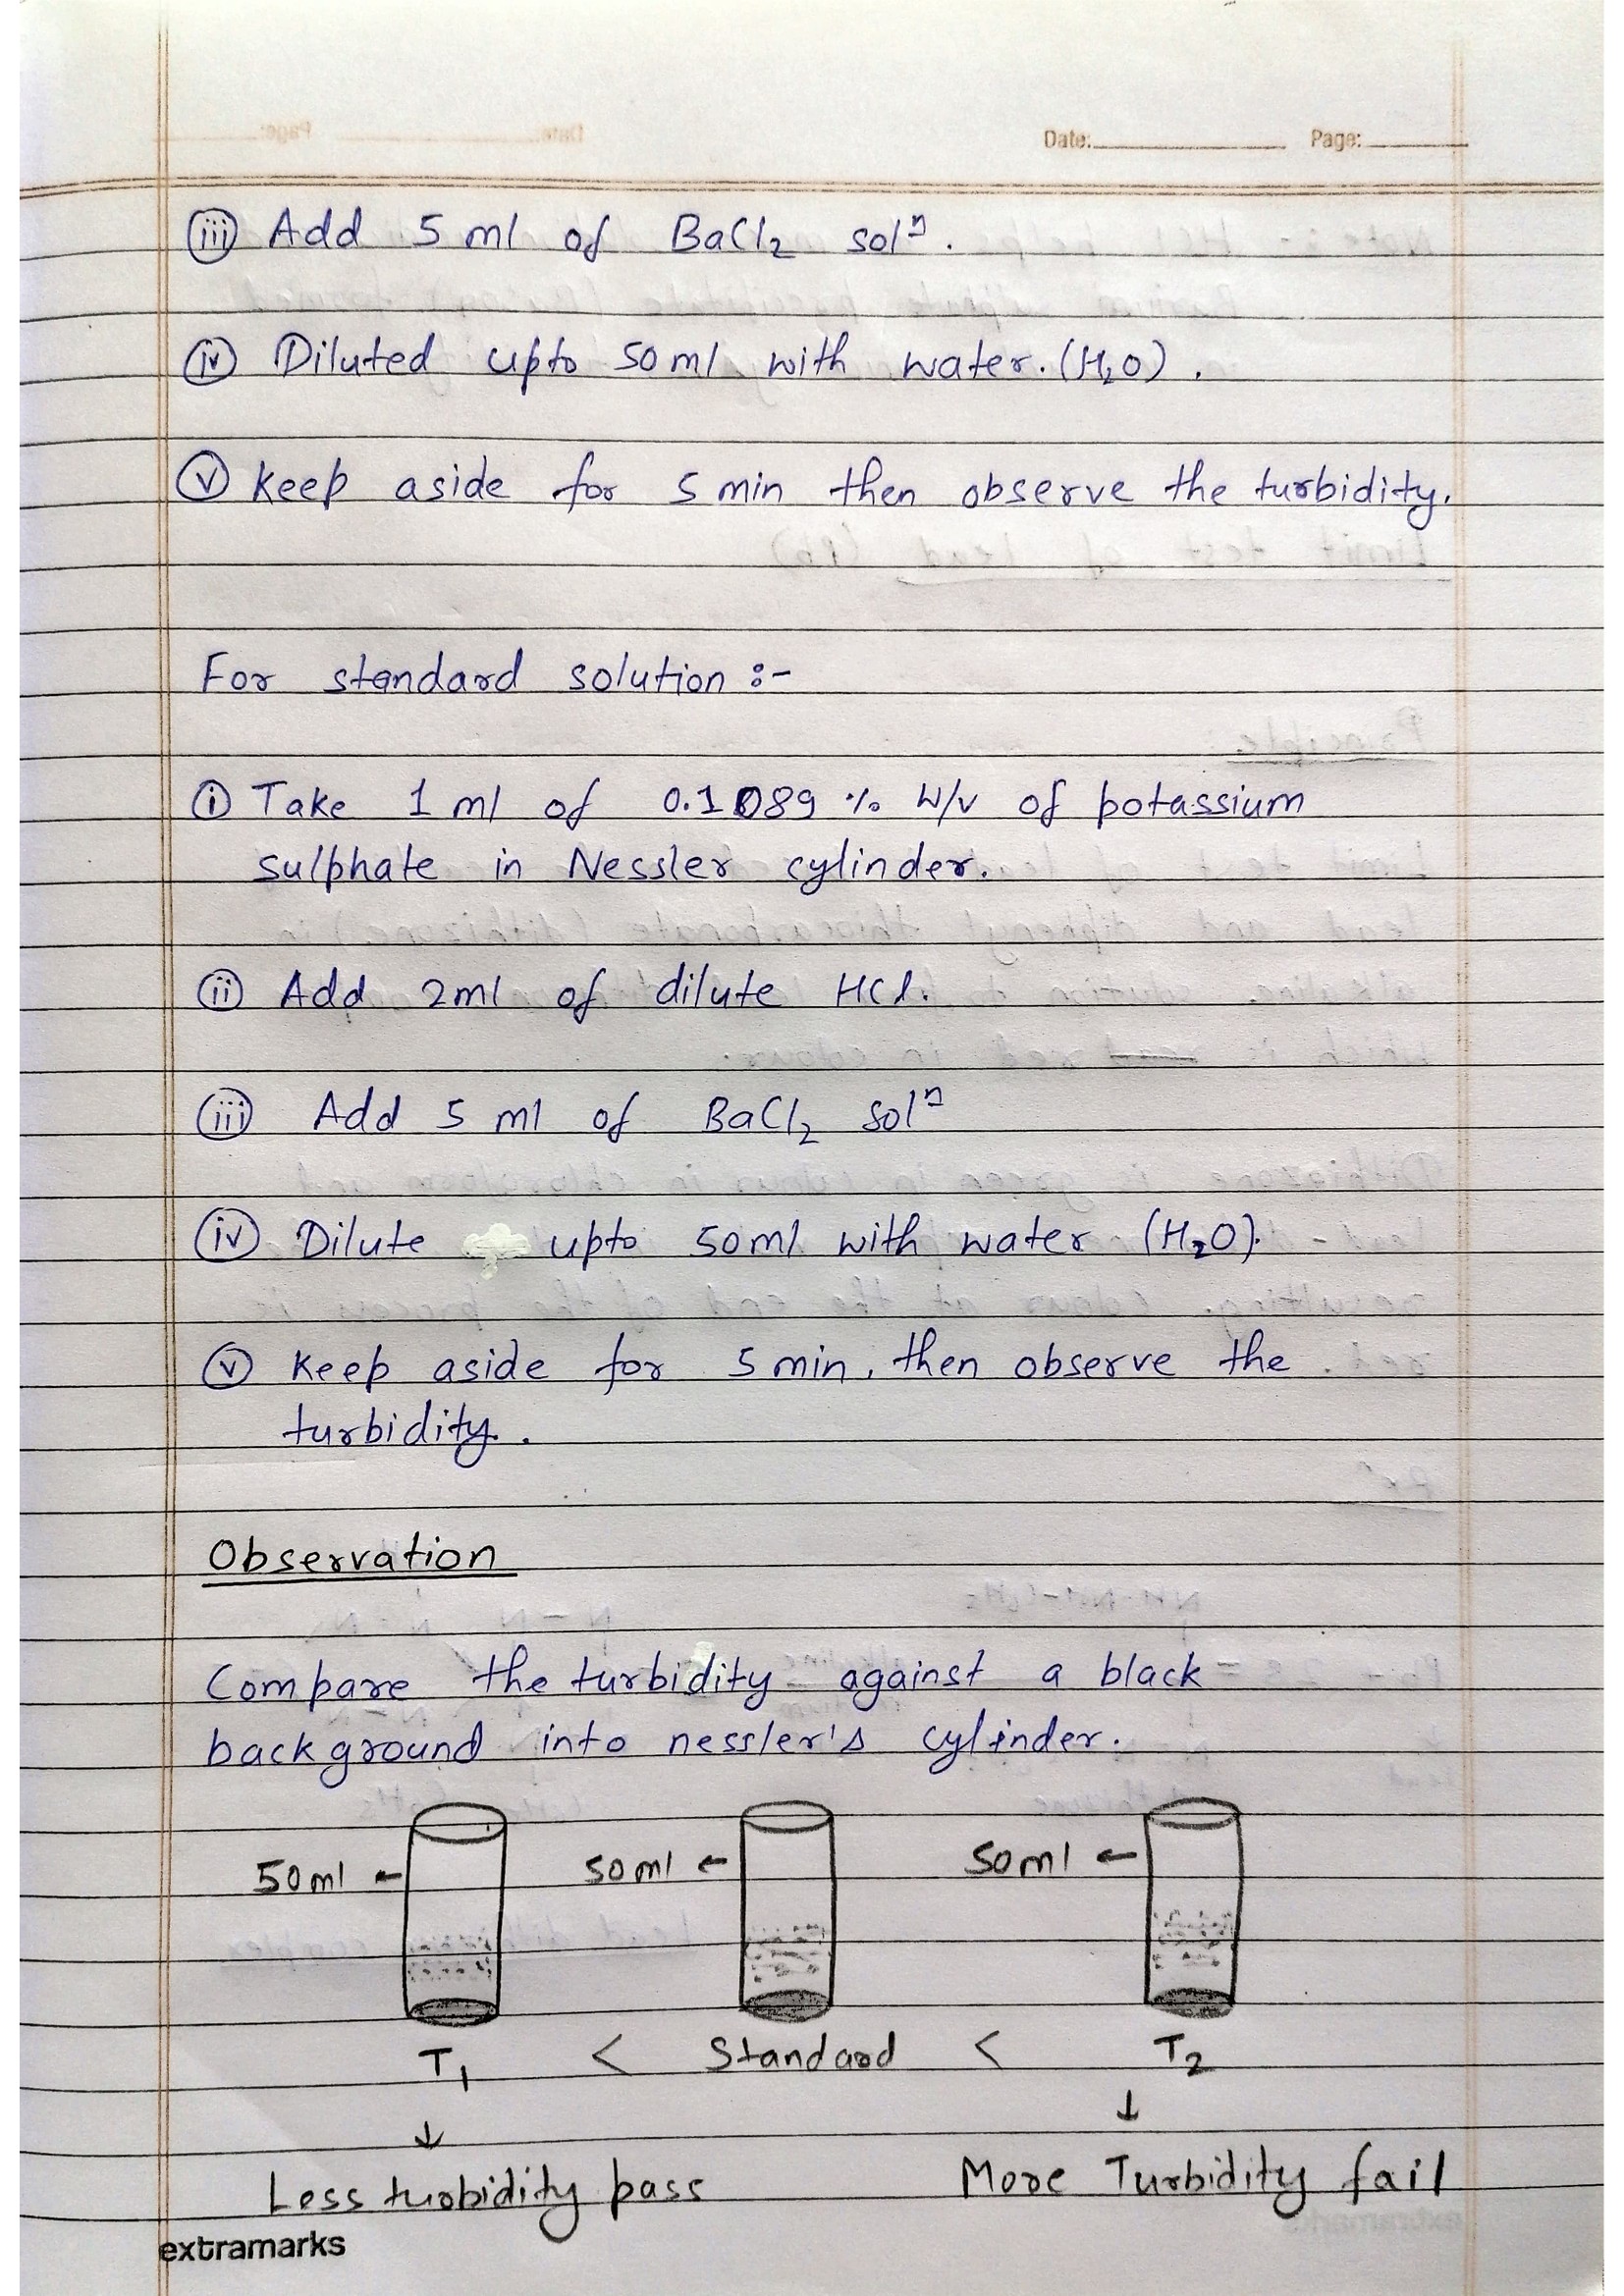 Date: Page:
(iii) Add 5 ml of BaCl₂ solⁿ.
(iv) Diluted upto 50 ml with water. (H₂O).
(v) Keep aside for 5 min then observe the turbidity.
For standard solution :-
(i) Take 1 ml of 0.1089 % W/v of potassium
sulphate in Nessler cylinder.
(ii) Add 2ml of dilute HCl.
(iii) Add 5 ml of BaCl₂ solⁿ
(iv) Dilute upto 50ml with water (H₂O).
(v) Keep aside for 5 min, then observe the
turbidity.
Observation
Compare the turbidity against a black
background into nessler's cylinder.
50ml ← 50ml ← 50ml ←
T₁ < Standard < T₂
↓ ↓
Less turbidity pass More Turbidity fail
extramarks